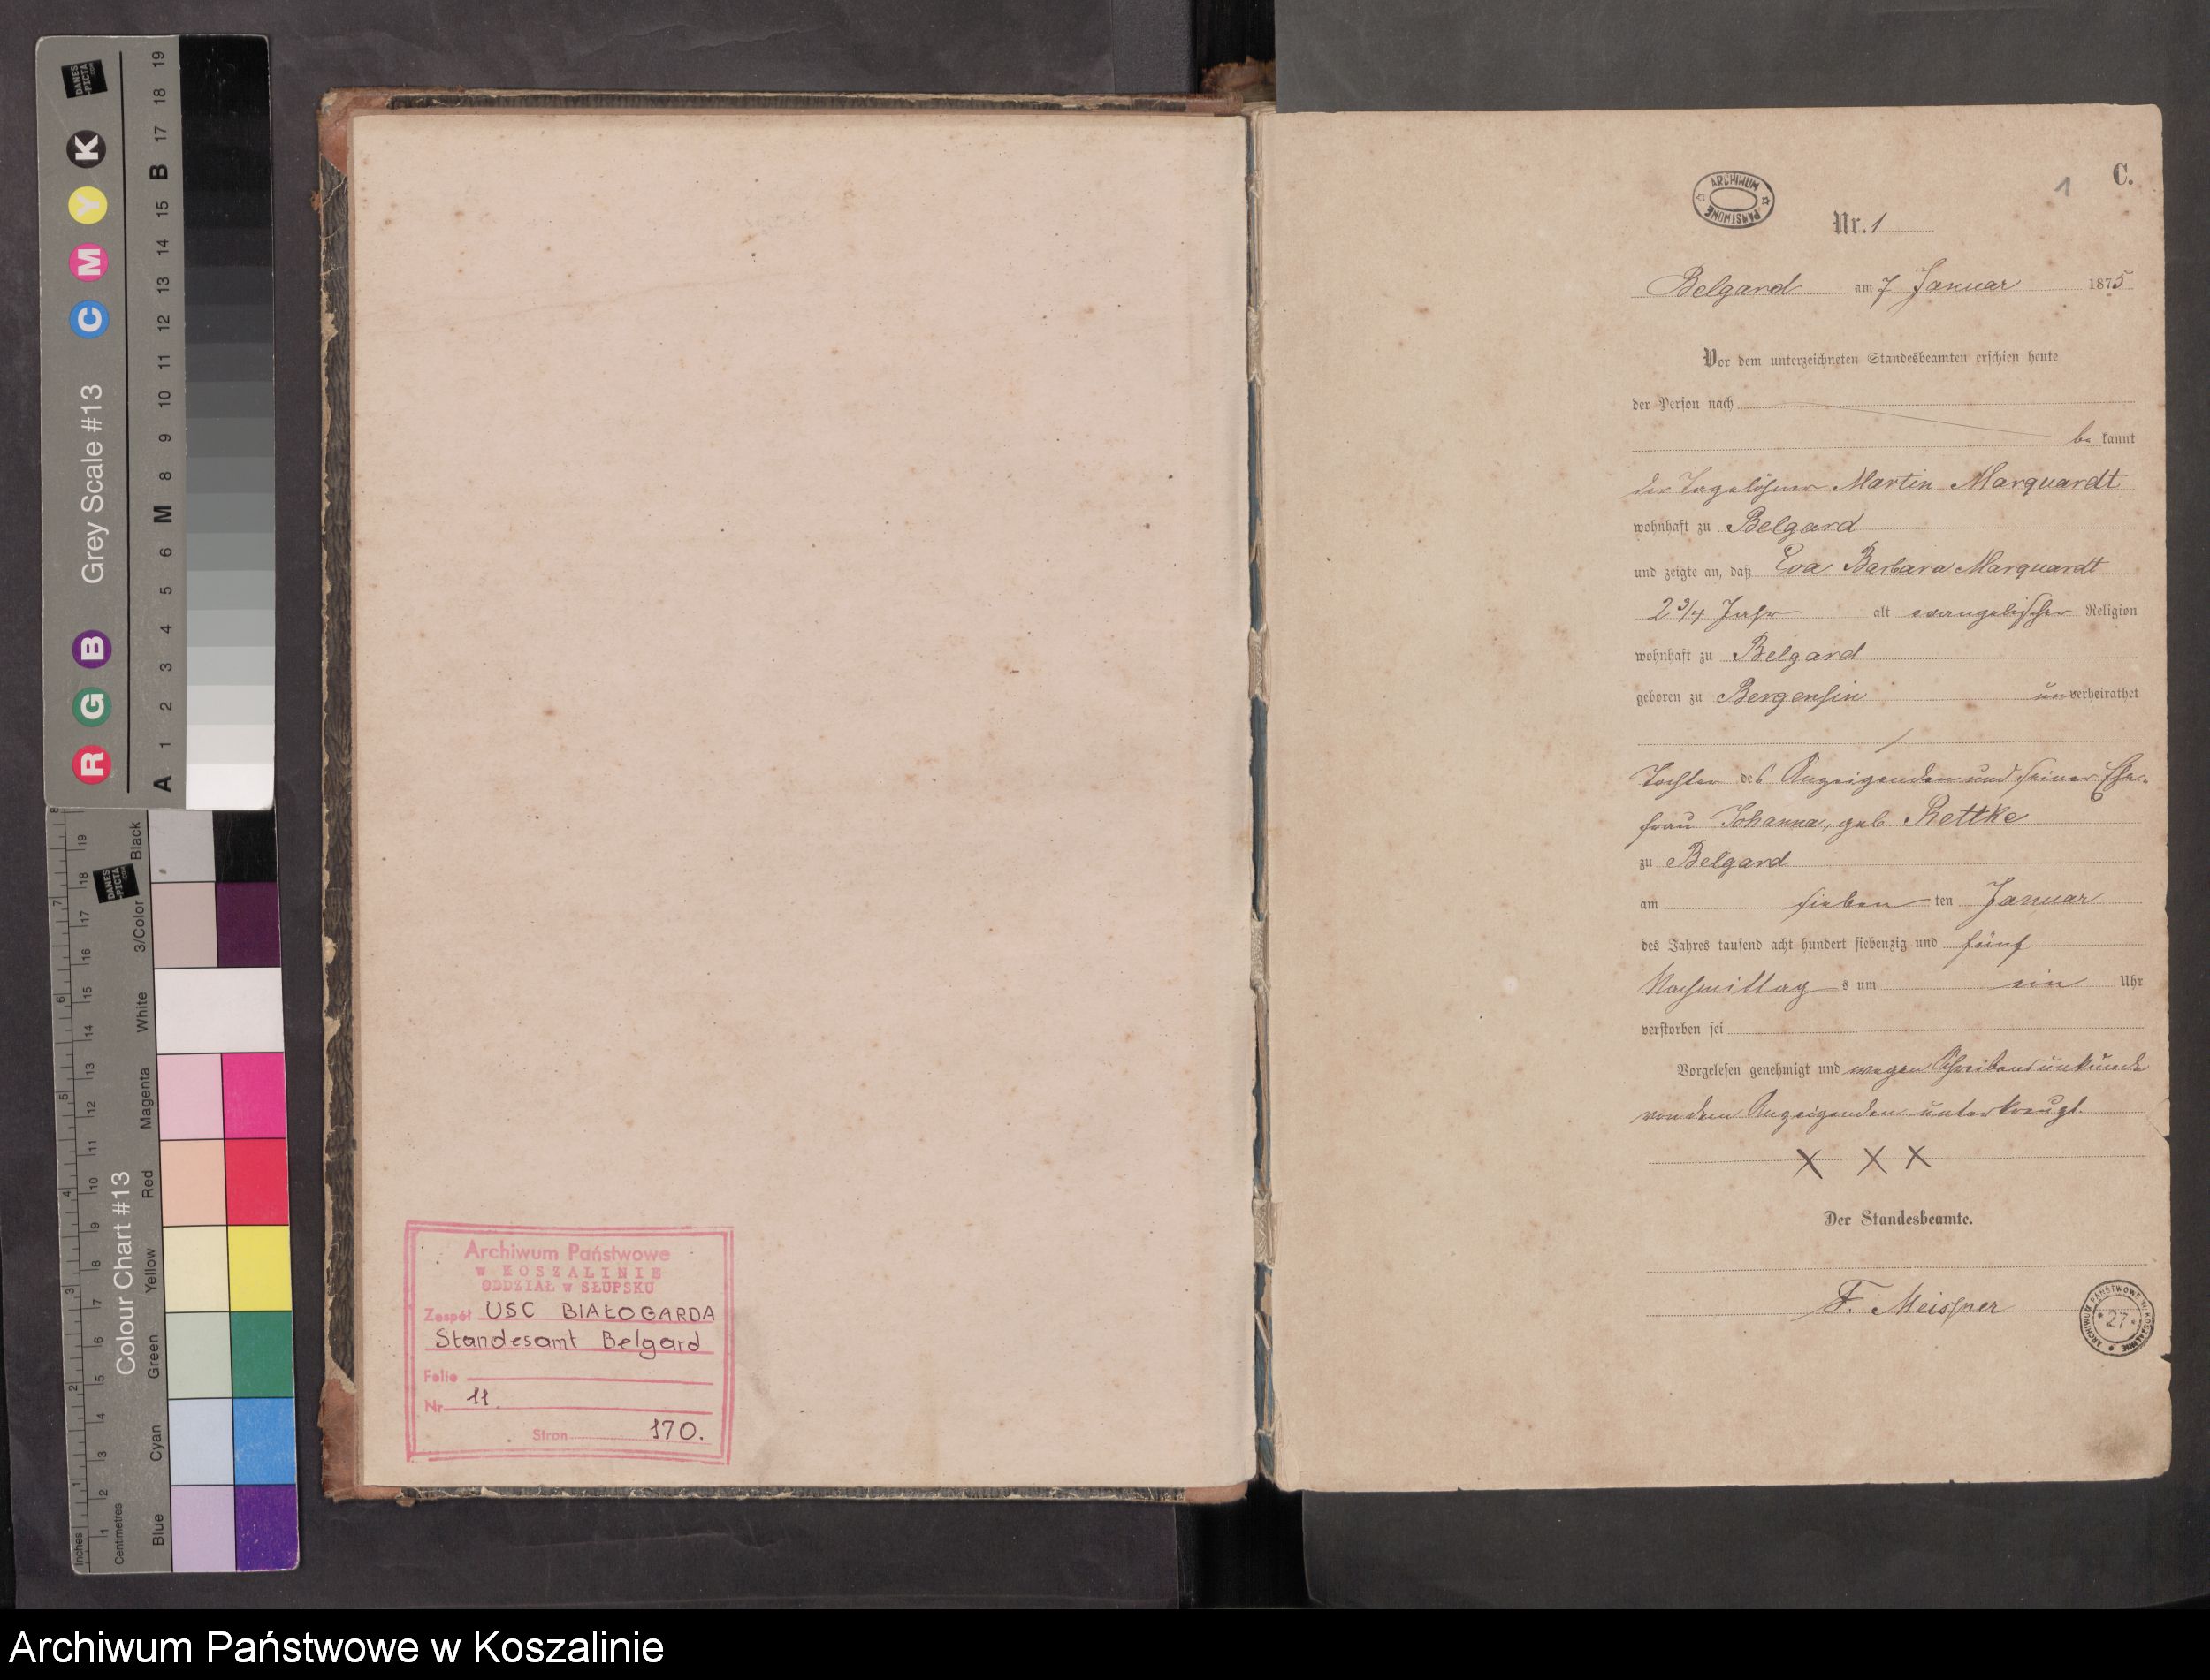 DANES
-PICTA
.COM
Grey Scale #13
R G B C M Y K
A 1 2 3 4 5 6 M 8 9 10 11 12 13 14 15 B 17 18 19
DANES
-PICTA
.COM
Colour Chart #13
Blue Cyan Green Yellow Red Magenta White 3/Color Black
Inches 1 2 3 4 5 6 7 8
Centimetres 1 2 3 4 5 6 7 8 9 10 11 12 13 14 15 16 17 18 19
Archiwum Państwowe
w KOSZALINIE
ODDZIAŁ w SŁUPSKU
Zespół USC BIAŁOGARDA
Standesamt Belgard
Folio
Nr 11.
Stron 170.
ARCHIWUM PAŃSTWOWE
1 C.
Nr. 1
Belgard am 7 Januar 1875
Vor dem unterzeichneten Standesbeamten erschien heute
der Person nach
be kannt
der Tagelöhner Martin Marquardt
wohnhaft zu Belgard
und zeigte an, daß Eva Barbara Marquardt
2 3/4 Jahr alt evangelischer Religion
wohnhaft zu Belgard
geboren zu Bergensin unverheirathet
Tochter des Anzeigenden und seiner Ehe-
frau Johanna, geb Rettke
zu Belgard
am sieben ten Januar
des Jahres tausend acht hundert siebenzig und fünf
Nachmittag s um ein Uhr
verstorben sei
Vorgelesen genehmigt und wegen Schreibensunkunde
von dem Anzeigenden unterkreuzt.
X X X
Der Standesbeamte.
F. Meissner
ARCHIWUM PAŃSTWOWE W KOSZALINIE
* 27 *
Archiwum Państwowe w Koszalinie